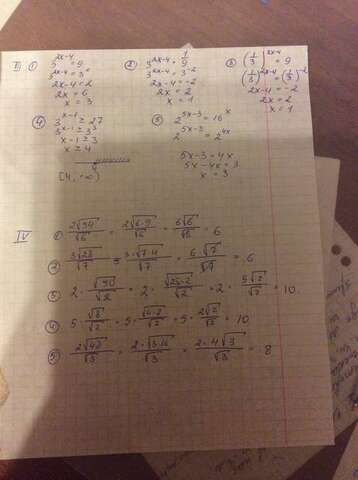 II ① 3^{2x-4} = 9
3^{2x-4} = 3^2
2x-4 = 2
2x = 6
x = 3
② 3^{2x-4} = 1/9
3^{2x-4} = 3^{-2}
2x-4 = -2
2x = 2
x = 1
③ (1/3)^{2x-4} = 9
(1/3)^{2x-4} = (1/3)^{-2}
2x-4 = -2
2x = 2
x = 1
④ 3^{x-1} ≥ 27
3^{x-1} ≥ 3^3
x-1 ≥ 3
x ≥ 4
4
[4, -∞)
⑤ 2^{5x-3} = 16^x
2^{5x-3} = 2^{4x}
5x-3 = 4x
5x-4x = 3
x = 3
IV ① 2√54/√6 = 2√6·9/√6 = 6√6/√6 = 6
② 3√28/√7 = 3·√7·4/√7 = 6·√7/√7 = 6
③ 2·√50/√2 = 2·√25·2/√2 = 2·5√2/√2 = 10
④ 5·√8/√2 = 5·√4·2/√2 = 5·2√2/√2 = 10
⑤ 2√48/√3 = 2·√3·16/√3 = 2·4√3/√3 = 8